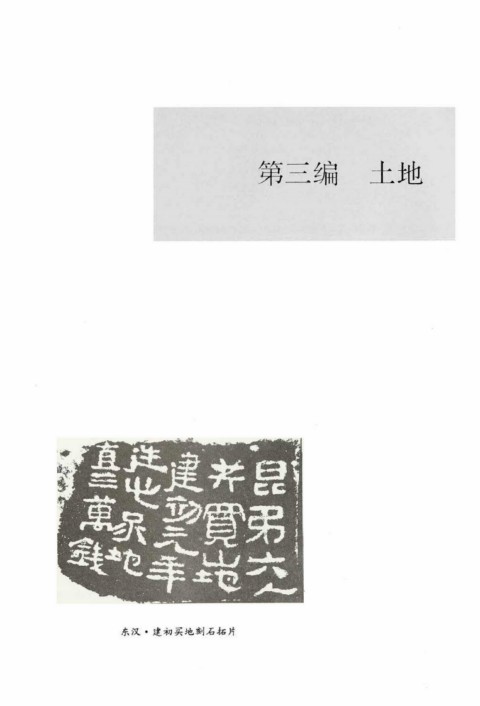 第三编 土地
昆弟六人
共買山地
建初元年
造此冢地
直三萬錢
东汉·建初买地刻石拓片